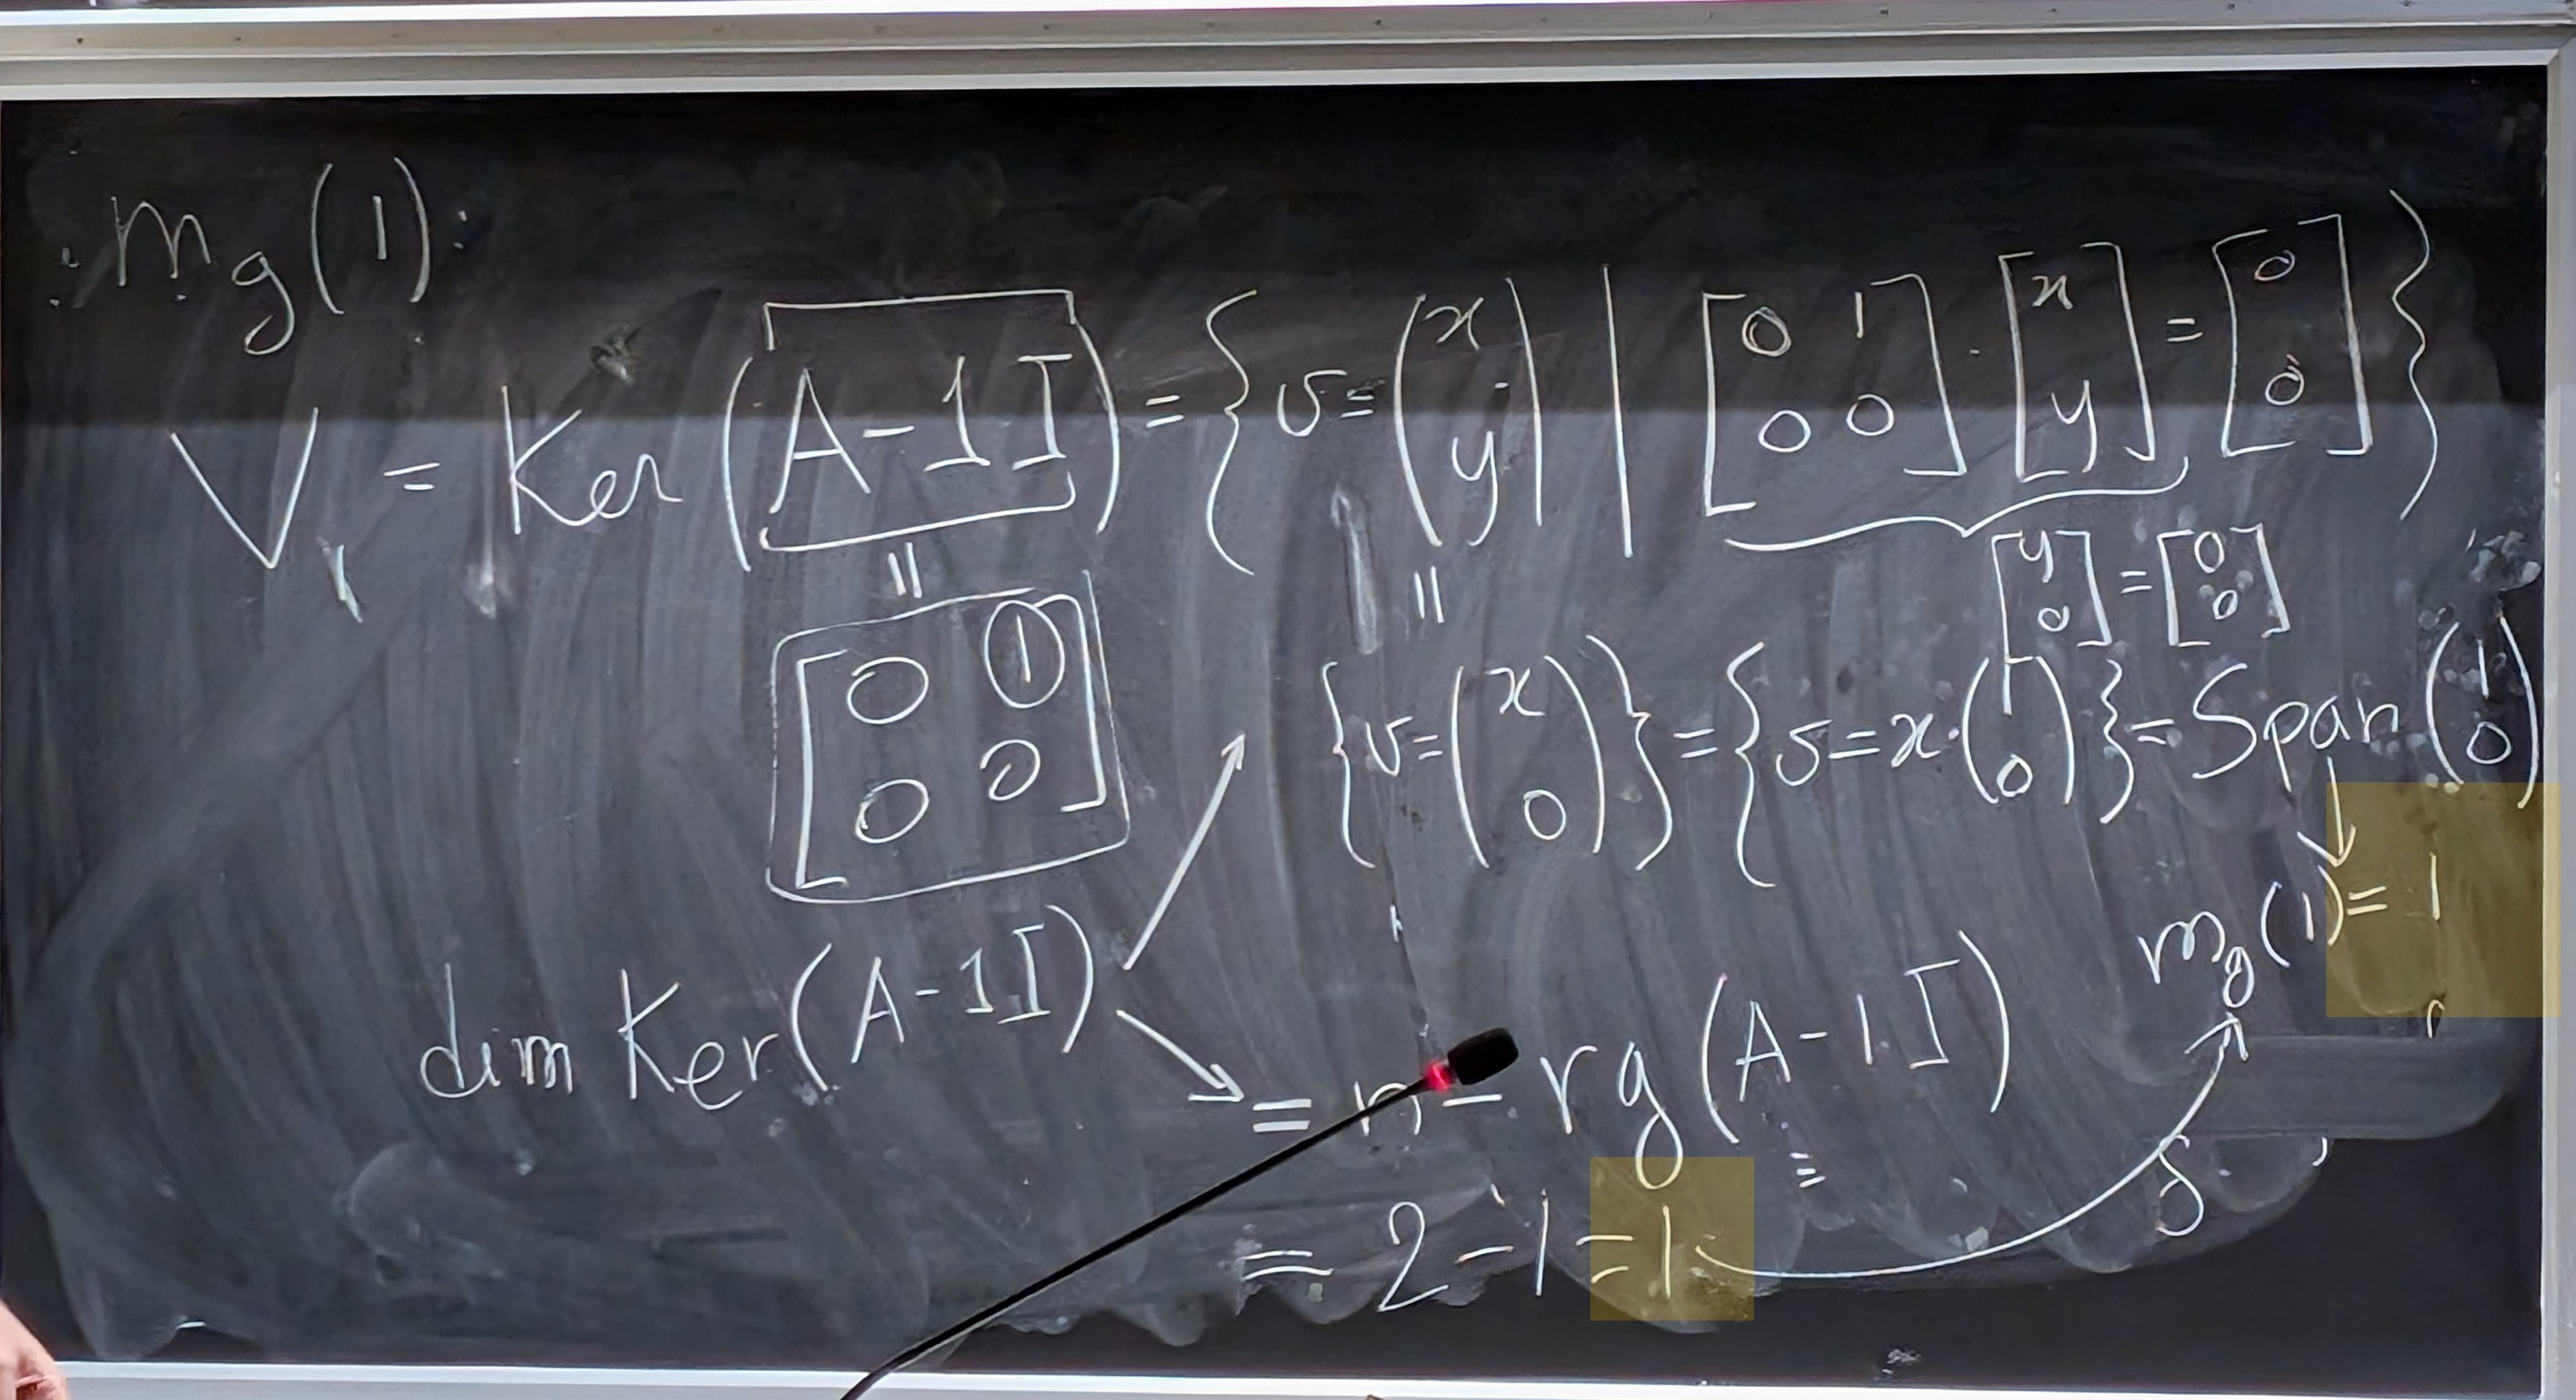 m_g(1):
V_1 = Ker(A-1I) = { v = (x y) | [0 1; 0 0] · [x y] = [0 0] }
[y 0] = [0 0]
= [0 1; 0 0]
= { v = (x 0) } = { v = x·(1 0) } = Span (1 0)
m_g(1) = 1
dim Ker(A-1I)
= n - rg(A-1I)
= 2-1=1